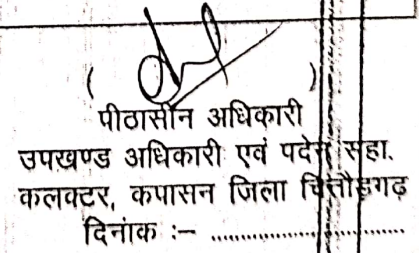 ( )
पीठासीन अधिकारी
उपखण्ड अधिकारी एवं पदेन सहा.
कलक्टर, कपासन जिला चित्तौड़गढ़
दिनांक :- ..............................